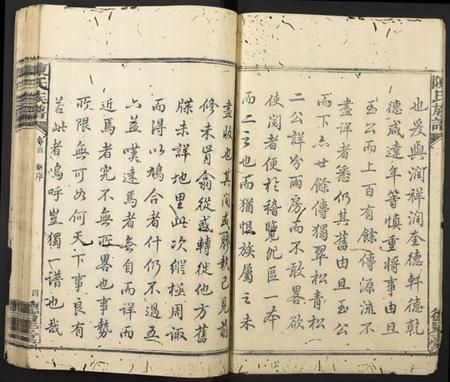 陳氏族譜
也爰與潤祥潤奎德軒德乾
德箴達年等慎重將事由旦
玉公而上百有餘傳源流不
盡詳者悉仍其舊由旦玉公
而下六廿餘傳獨翠松青松
二公詳分兩房而不敢畧欲
使閱者便於稽覽况區一本
而二之也猶恨族屬之未
盡收也其間或膠執己見前
修未肯翕從或轉徙他方舊
牒未詳地里此次縱極周諏
而得以鳩合者什仍不過五
六益嘆遠焉者無自而詳而
近焉者究不無所畧也事勢
所限無可如何天下事良有
若此者嗚呼豈獨一譜也哉
陳氏族譜
卷首
序
四